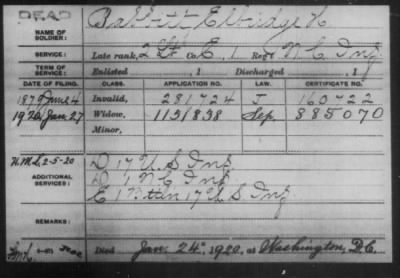 DEAD
NAME OF SOLDIER: Babbitt Elbridge H
SERVICE: Late rank, 2 Lt Co. E, 1 Reg't N.C. Inf
TERM OF SERVICE: Enlisted , 1 Discharged , 1
DATE OF FILING. CLASS. APPLICATION NO. LAW. CERTIFICATE NO.
1879 June 4 Invalid, 281724 J 160722
1920 Jan 27 Widow, 1151838 Sep 885070
Minor,
2-5-20
ADDITIONAL SERVICES: D 17 U.S. Inf.
D 1 N C Inf
E 1" 17" U S Inf
REMARKS:
Died Jan. 24", 1920, at Washington, D.C.